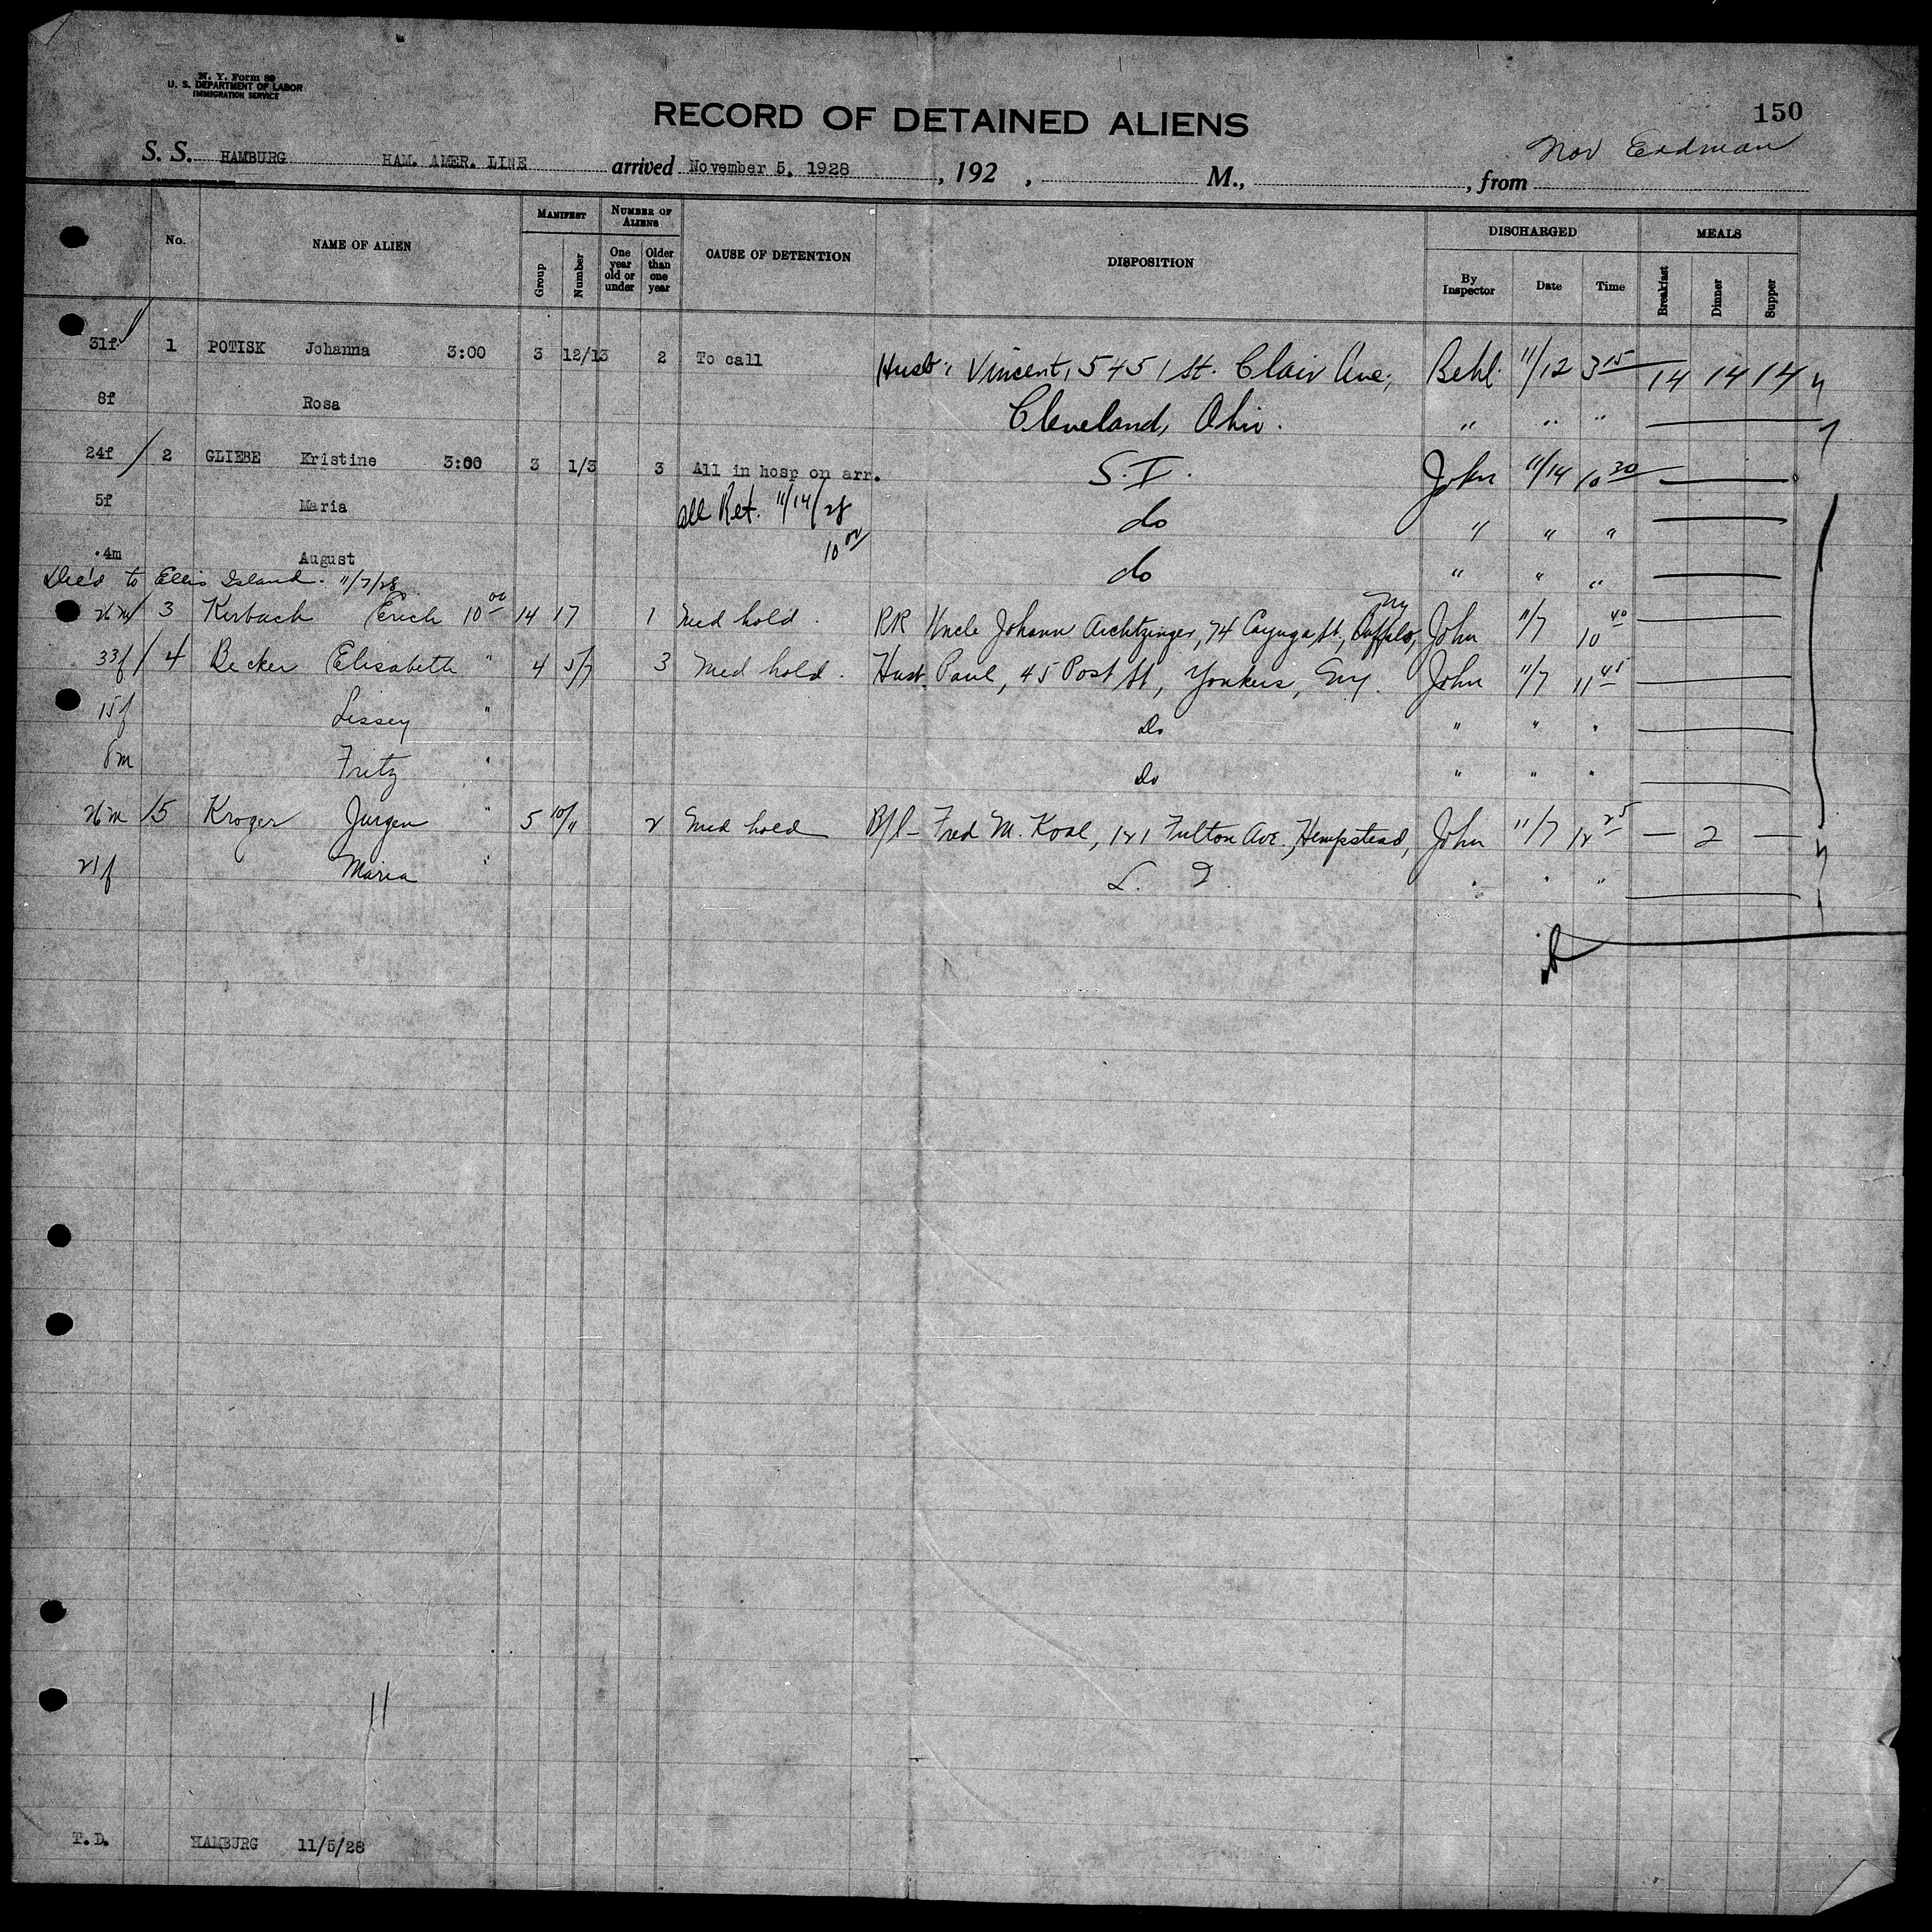 N. Y. Form 89
U. S. DEPARTMENT OF LABOR
IMMIGRATION SERVICE
150
RECORD OF DETAINED ALIENS
Nov Erdman
S. S. HAMBURG HAM. AMER. LINE arrived November 5, 1928, 192 , M., , from
No. NAME OF ALIEN MANIFEST Group Number NUMBER OF ALIENS One year old or under Older than one year CAUSE OF DETENTION DISPOSITION DISCHARGED By Inspector Date Time MEALS Breakfast Dinner Supper
31f 1 POTISK Johanna 3:00 3 12/13 2 To call Husb: Vincent, 5451 St. Clair Ave; Behl. 11/12 3 15 14 14 14
8f Rosa Cleveland, Ohio. " " "
24f 2 GLIEBE Kristine 3:00 3 1/3 3 All in hosp on arr. S.I. John 11/14 10 20
5f Maria all Ret. 11/14/28 do " " "
10 00
4m August do " " "
to Ellis Island. 11/7/28
26m 3 Kerbach Erich 10 00 14 17 1 Med hold. RR Uncle Johann Aichtzinger, 74 Cayuga St., Buffalo, NY John 11/7 10 40
33f 4 Becker Elisabeth " 4 5/7 3 Med hold. Husb. Paul, 45 Post St, Yonkers, NY. John 11/7 11 45
15f Lissey " Do " " "
8m Fritz " Do " " "
26m 5 Kroger Jurgen " 5 10/11 2 Med hold B/l - Fred M. Koal, 121 Fulton Ave., Hempstead, John 11/7 12 25 — 2 —
21f Maria " L. I. " " "
11
T.D. HAMBURG 11/5/28